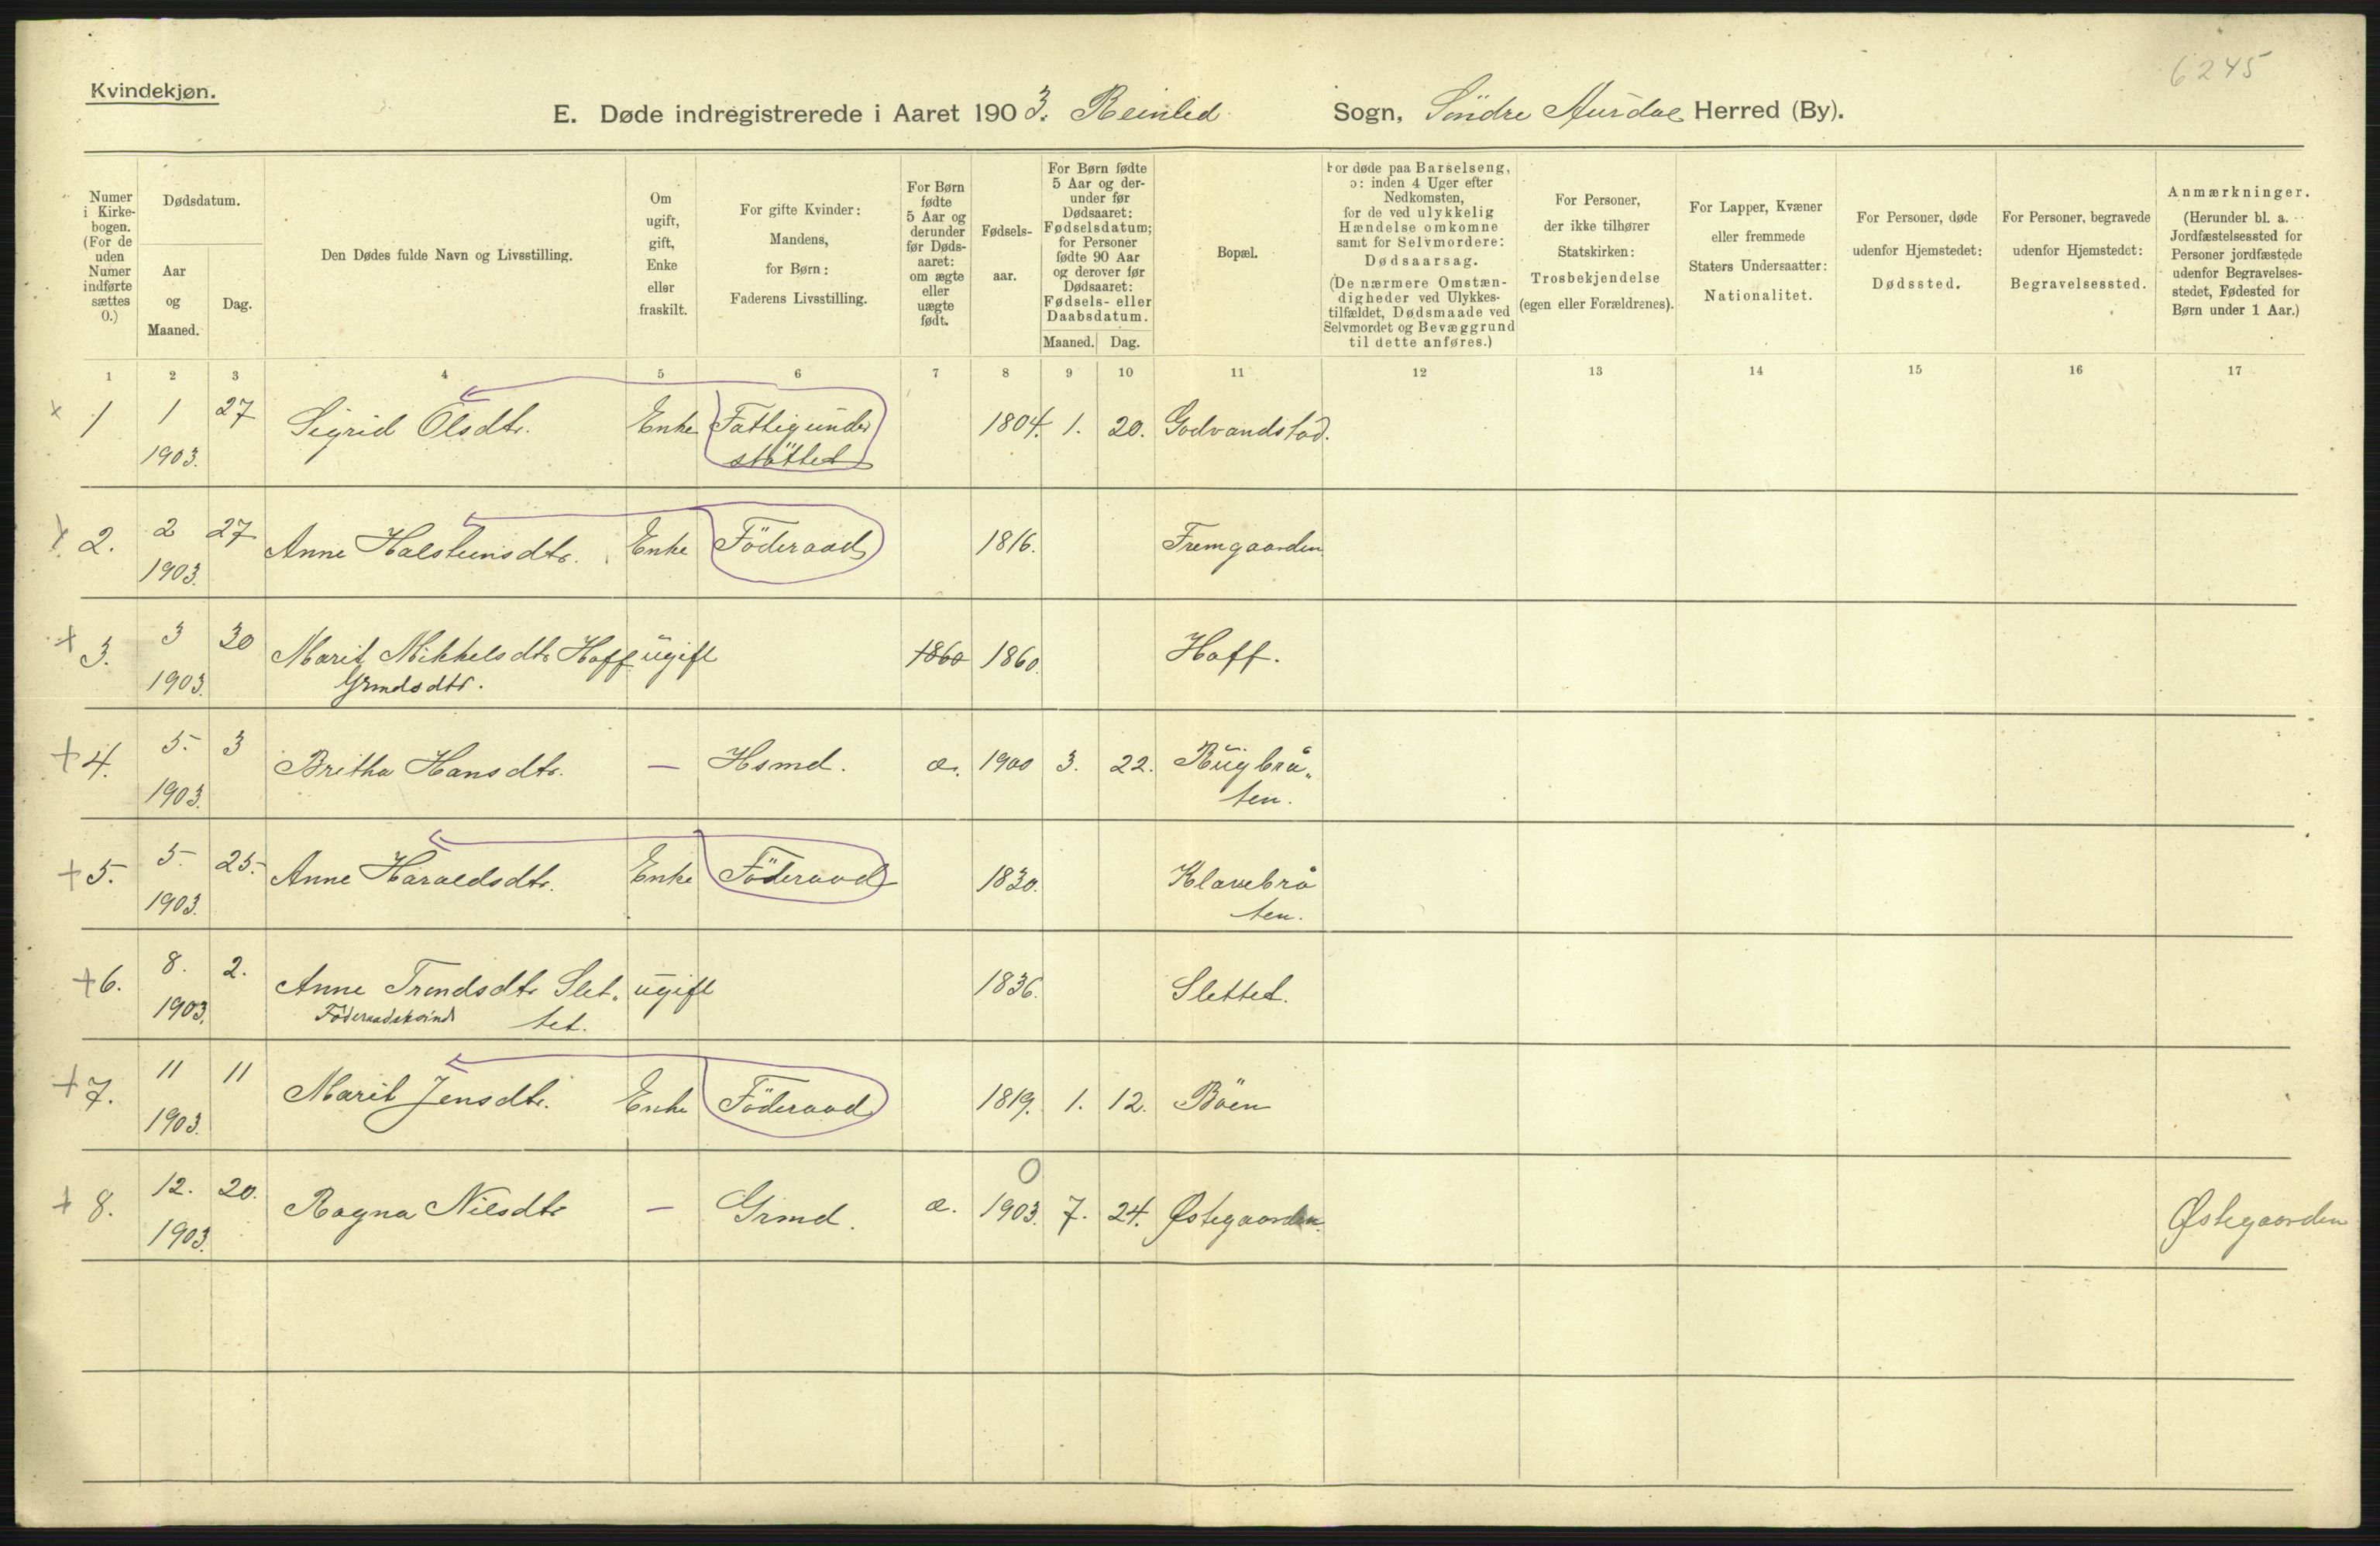 6245
Kvindekjøn.
E. Døde indregistrerede i Aaret 1903. Reinlid Sogn, Söndre Aurdal Herred (By).
Numer i Kirkebogen. (For de uden Numer indførte sættes 0.)
Dødsdatum.
Aar og Maaned.
Dag.
Den Dødes fulde Navn og Livsstilling.
Om ugift, gift, Enke eller fraskilt.
For gifte Kvinder: Mandens, for Børn: Faderens Livsstilling.
For Børn fødte 5 Aar og derunder før Dødsaaret: om ægte eller uægte født.
Fødselsaar.
For Børn fødte 5 Aar og derunder før Dødsaaret: Fødselsdatum; for Personer fødte 90 Aar og derover før Dødsaaret: Fødsels- eller Daabsdatum.
Maaned. Dag.
Bopæl.
For døde paa Barselseng, ɔ: inden 4 Uger efter Nedkomsten, for de ved ulykkelig Hændelse omkomne samt for Selvmordere: Dødsaarsag. (De nærmere Omstændigheder ved Ulykkestilfældet, Dødsmaade ved Selvmordet og Bevæggrund til dette anføres.)
For Personer, der ikke tilhører Statskirken: Trosbekjendelse (egen eller Forældrenes).
For Lapper, Kvæner eller fremmede Staters Undersaatter: Nationalitet.
For Personer, døde udenfor Hjemstedet: Dødssted.
For Personer, begravede udenfor Hjemstedet: Begravelsessted.
Anmærkninger. (Herunder bl. a. Jordfæstelsessted for Personer jordfæstede udenfor Begravelsesstedet, Fødested for Børn under 1 Aar.)
1 2 3 4 5 6 7 8 9 10 11 12 13 14 15 16 17
x 1 1 27 Sigrid Olsdtr. Enke Fattigunder 1804. 1. 20. Godvandstad.
1903. støttet
x 2. 2 27 Anne Halsteinsdtr. Enke Föderaad 1816. Fremgaarden
1903.
+ 3. 3 30 Marit Mikkelsdtr Hoff ugift 1860 1860. Hoff.
1903. Grmdsdtr.
+ 4. 5. 3 Britha Hansdtr. — Hsmd. æ. 1900 3. 22. Rugbrå„
1903. ten.
+ 5. 5. 25. Anne Haraldsdtr. Enke Föderaad 1830. Klavebrå
1903. ten.
+ 6. 8. 2. Anne Trondsdtr Slet„ ugift 1836. Slettet.
1903. Föderaadskvinde tet.
+ 7. 11 11 Marit Jensdtr. Enke Föderaad 1819. 1. 12. Böen
1903.
0
+ 8. 12. 20. Ragna Nilsdtr — Grmd. æ. 1903. 7. 24. Østegaarden. Østegaarden
1903.